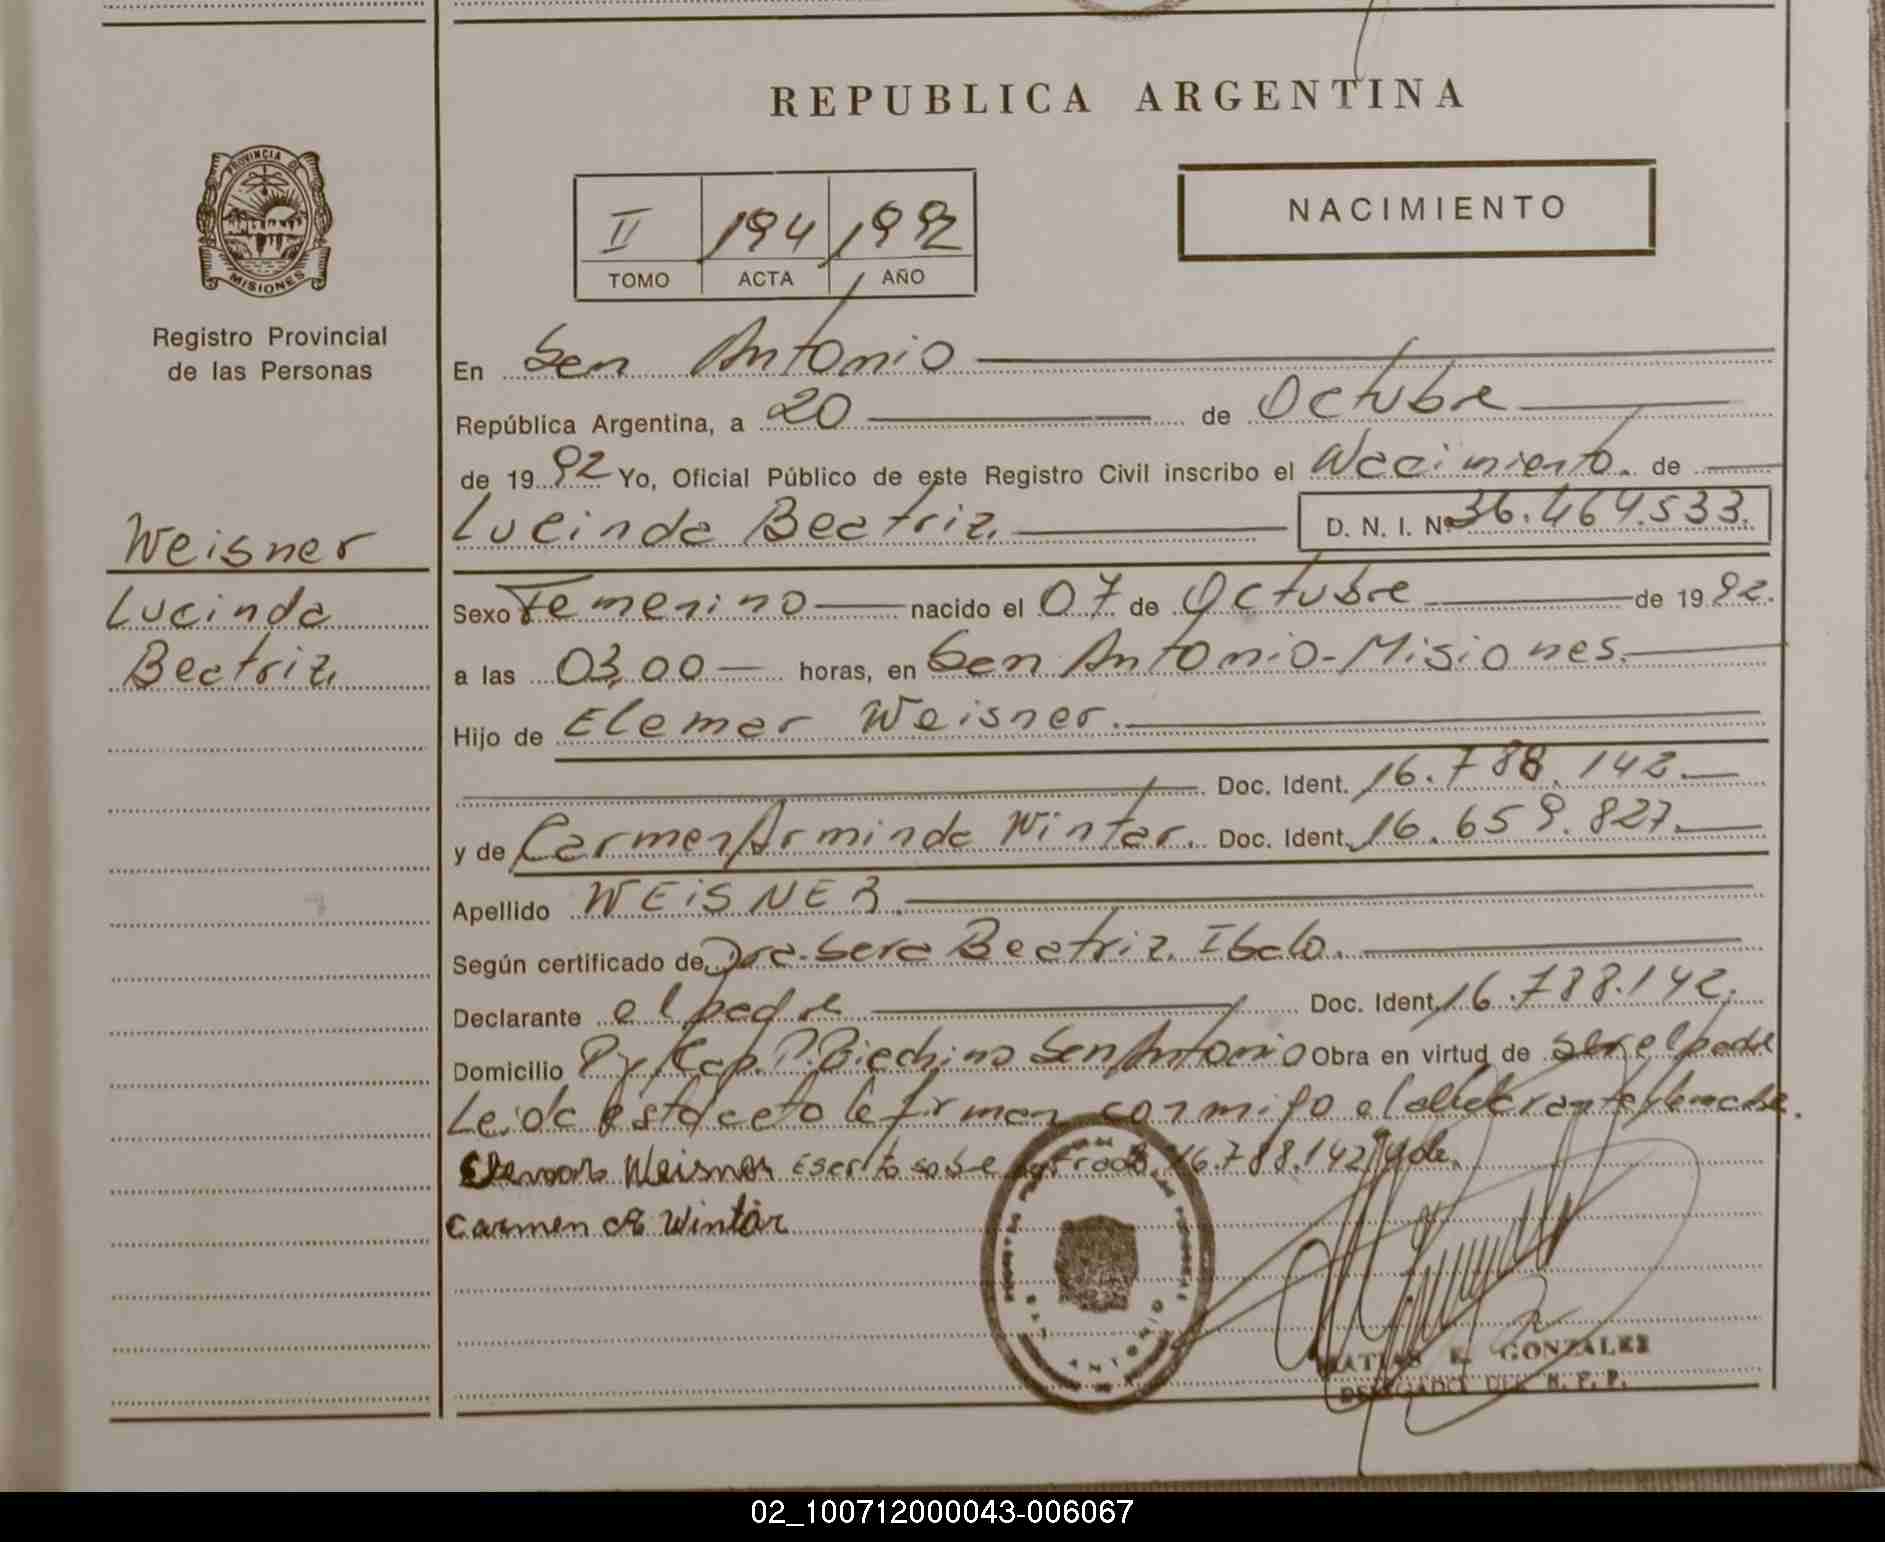 REPUBLICA ARGENTINA
PROVINCIA DE
MISIONES
Registro Provincial
de las Personas
II 194 1992
TOMO ACTA AÑO
NACIMIENTO
Weisner
Lucinda
Beatriz
En San Antonio
República Argentina, a 20 de Octubre
de 1992 Yo, Oficial Público de este Registro Civil inscribo el Nacimiento de
Lucinda Beatriz D. N. I. Nº 36.464.533.
Sexo Femenino nacido el 07 de Octubre de 1992.
a las 03,00 horas, en San Antonio-Misiones.
Hijo de Elemar Weisner.
Doc. Ident. 16.788.142
y de Carmen Arminda Winter. Doc. Ident. 16.659.827
Apellido WEISNER
Según certificado de Dra. Sara Beatriz Ibalo.
Declarante el padre Doc. Ident. 16.788.142.
Domicilio Cap. San Antonio Obra en virtud de ser el padre
Leida esta acta la firman conmigo el
Weisner Escrito sobre 16.788.142
Carmen Winter
SAN ANTONIO
MATIAS E. GONZALEZ
DELEGADO DEL R. P. P.
02_100712000043-006067